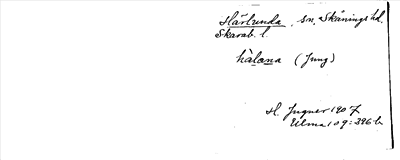 Härlunda sn. Skånings hd.
Skarab. l.
hälona (Jung)
H. Jugner 1907
Ulma 109:396 b